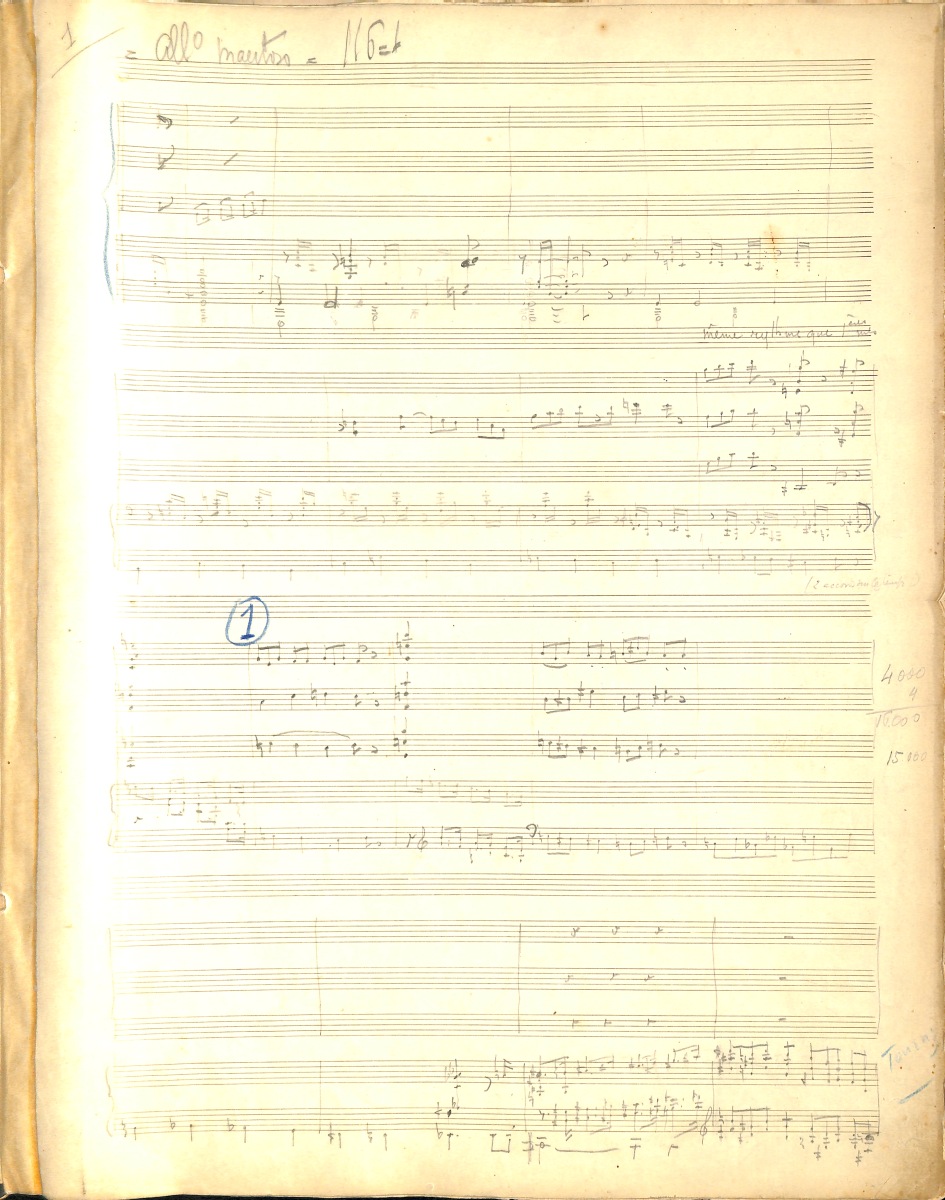 1
= All° maestoso = 116=♩
même rythme que
1
4000
4
16.000
15.000